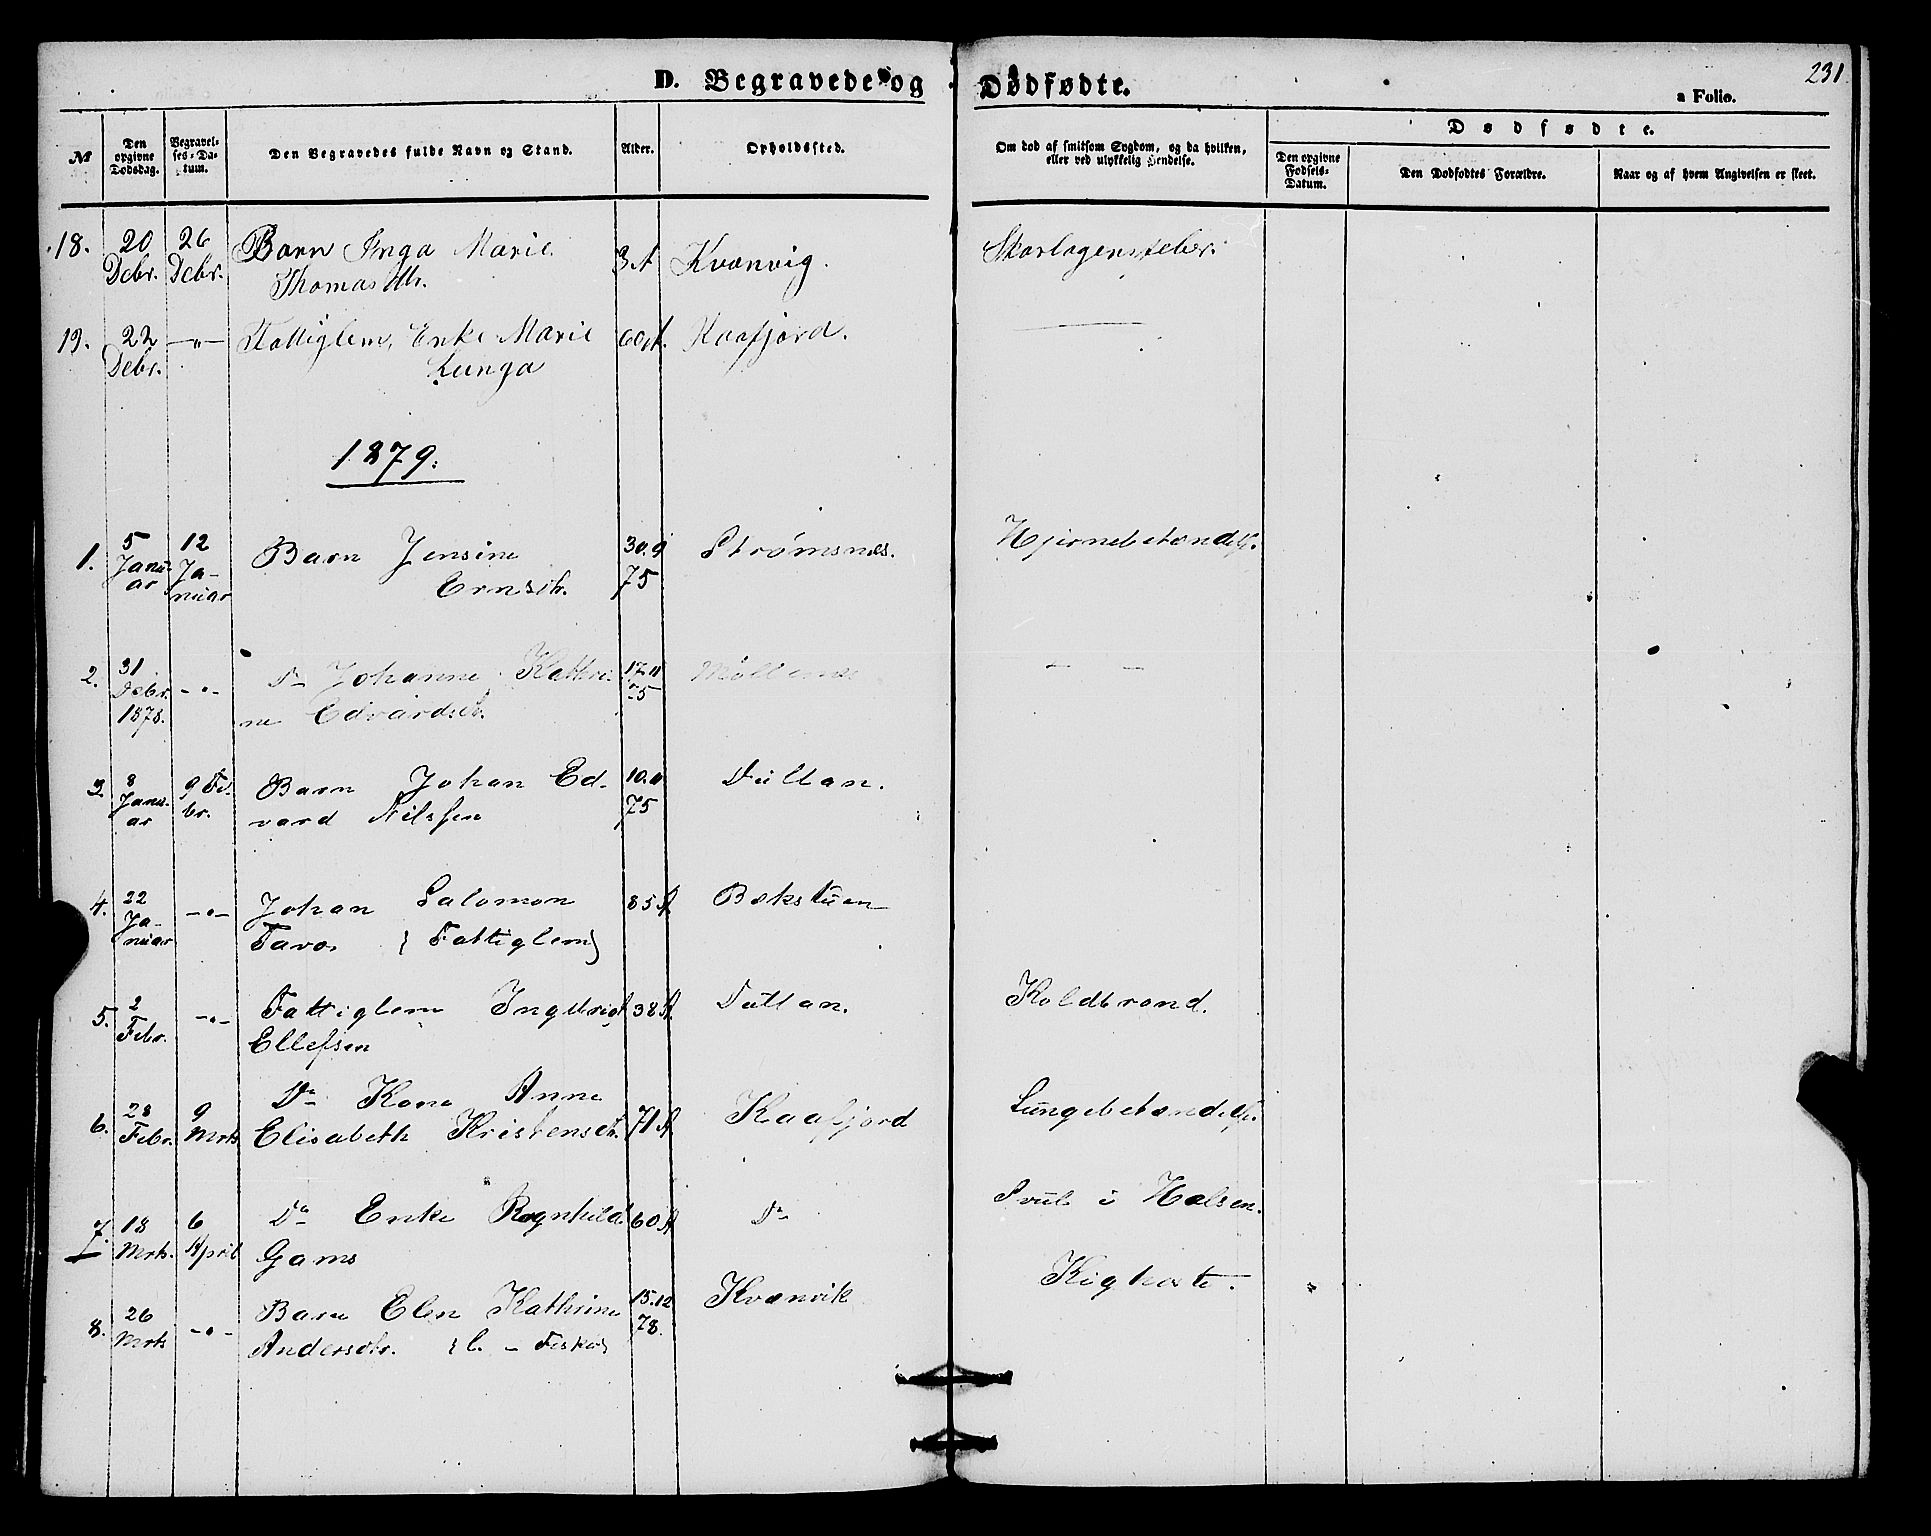 D. Begravede og Dødfødte.
231
a Folio.
№
Den opgivne Dødsdag.
Begravelses-Datum.
Den Begravedes fulde Navn og Stand.
Alder.
Opholdssted.
Om død af smitsom Sygdom, og da hvilken,
eller ved ulykkelig Hendelse.
Dødfødte.
Den opgivne Fødsels-Datum.
Den Dødfødtes Forældre.
Naar og af hvem Angivelsen er skeet.
18. 20 26 Barn Inga Marie 3 A Kvænvig. Skarlagensfeber.
Debr. Debr. Thomasdtr.
19. 22 —"— Fattiglem, Enke Marie 60 A. Kaafjord. —
Debr. Lunga
1879.
1. 5 12 Barn Jensine 30.9 Strømsnes. Hjernebetændelse.
Janu- Ja- Ernsdtr. 75
ar nuar
2. 31 -"- Do Johanne Kathri- 17.11
Debr. ne Edvardsdt. 75
1878.
3. 8 9 Fe- Barn Johan Ed- 10.11
Janu- br. vard Nilssen 75
ar
4. 22 -"- Johan Salomon 85 A.
Ja- (Fattiglem)
nuar
5. 2 -"- Fattiglem 38 A. Koldbrand.
Febr. Ellefsen
6. 28 9 Do Kone Anne 71 A. Kaafjord Lungebetændelse.
Febr. Mrts Elisabeth Kristensdt.
7. 18 6 Do Enke Ragnhild 60 A Do Svul i Halsen.
Mrts. April Gams
8. 26 -"- Barn Elen Kathrine 15.12 Kvænvik Kighoste.
Mrts Andersdtr. 78.